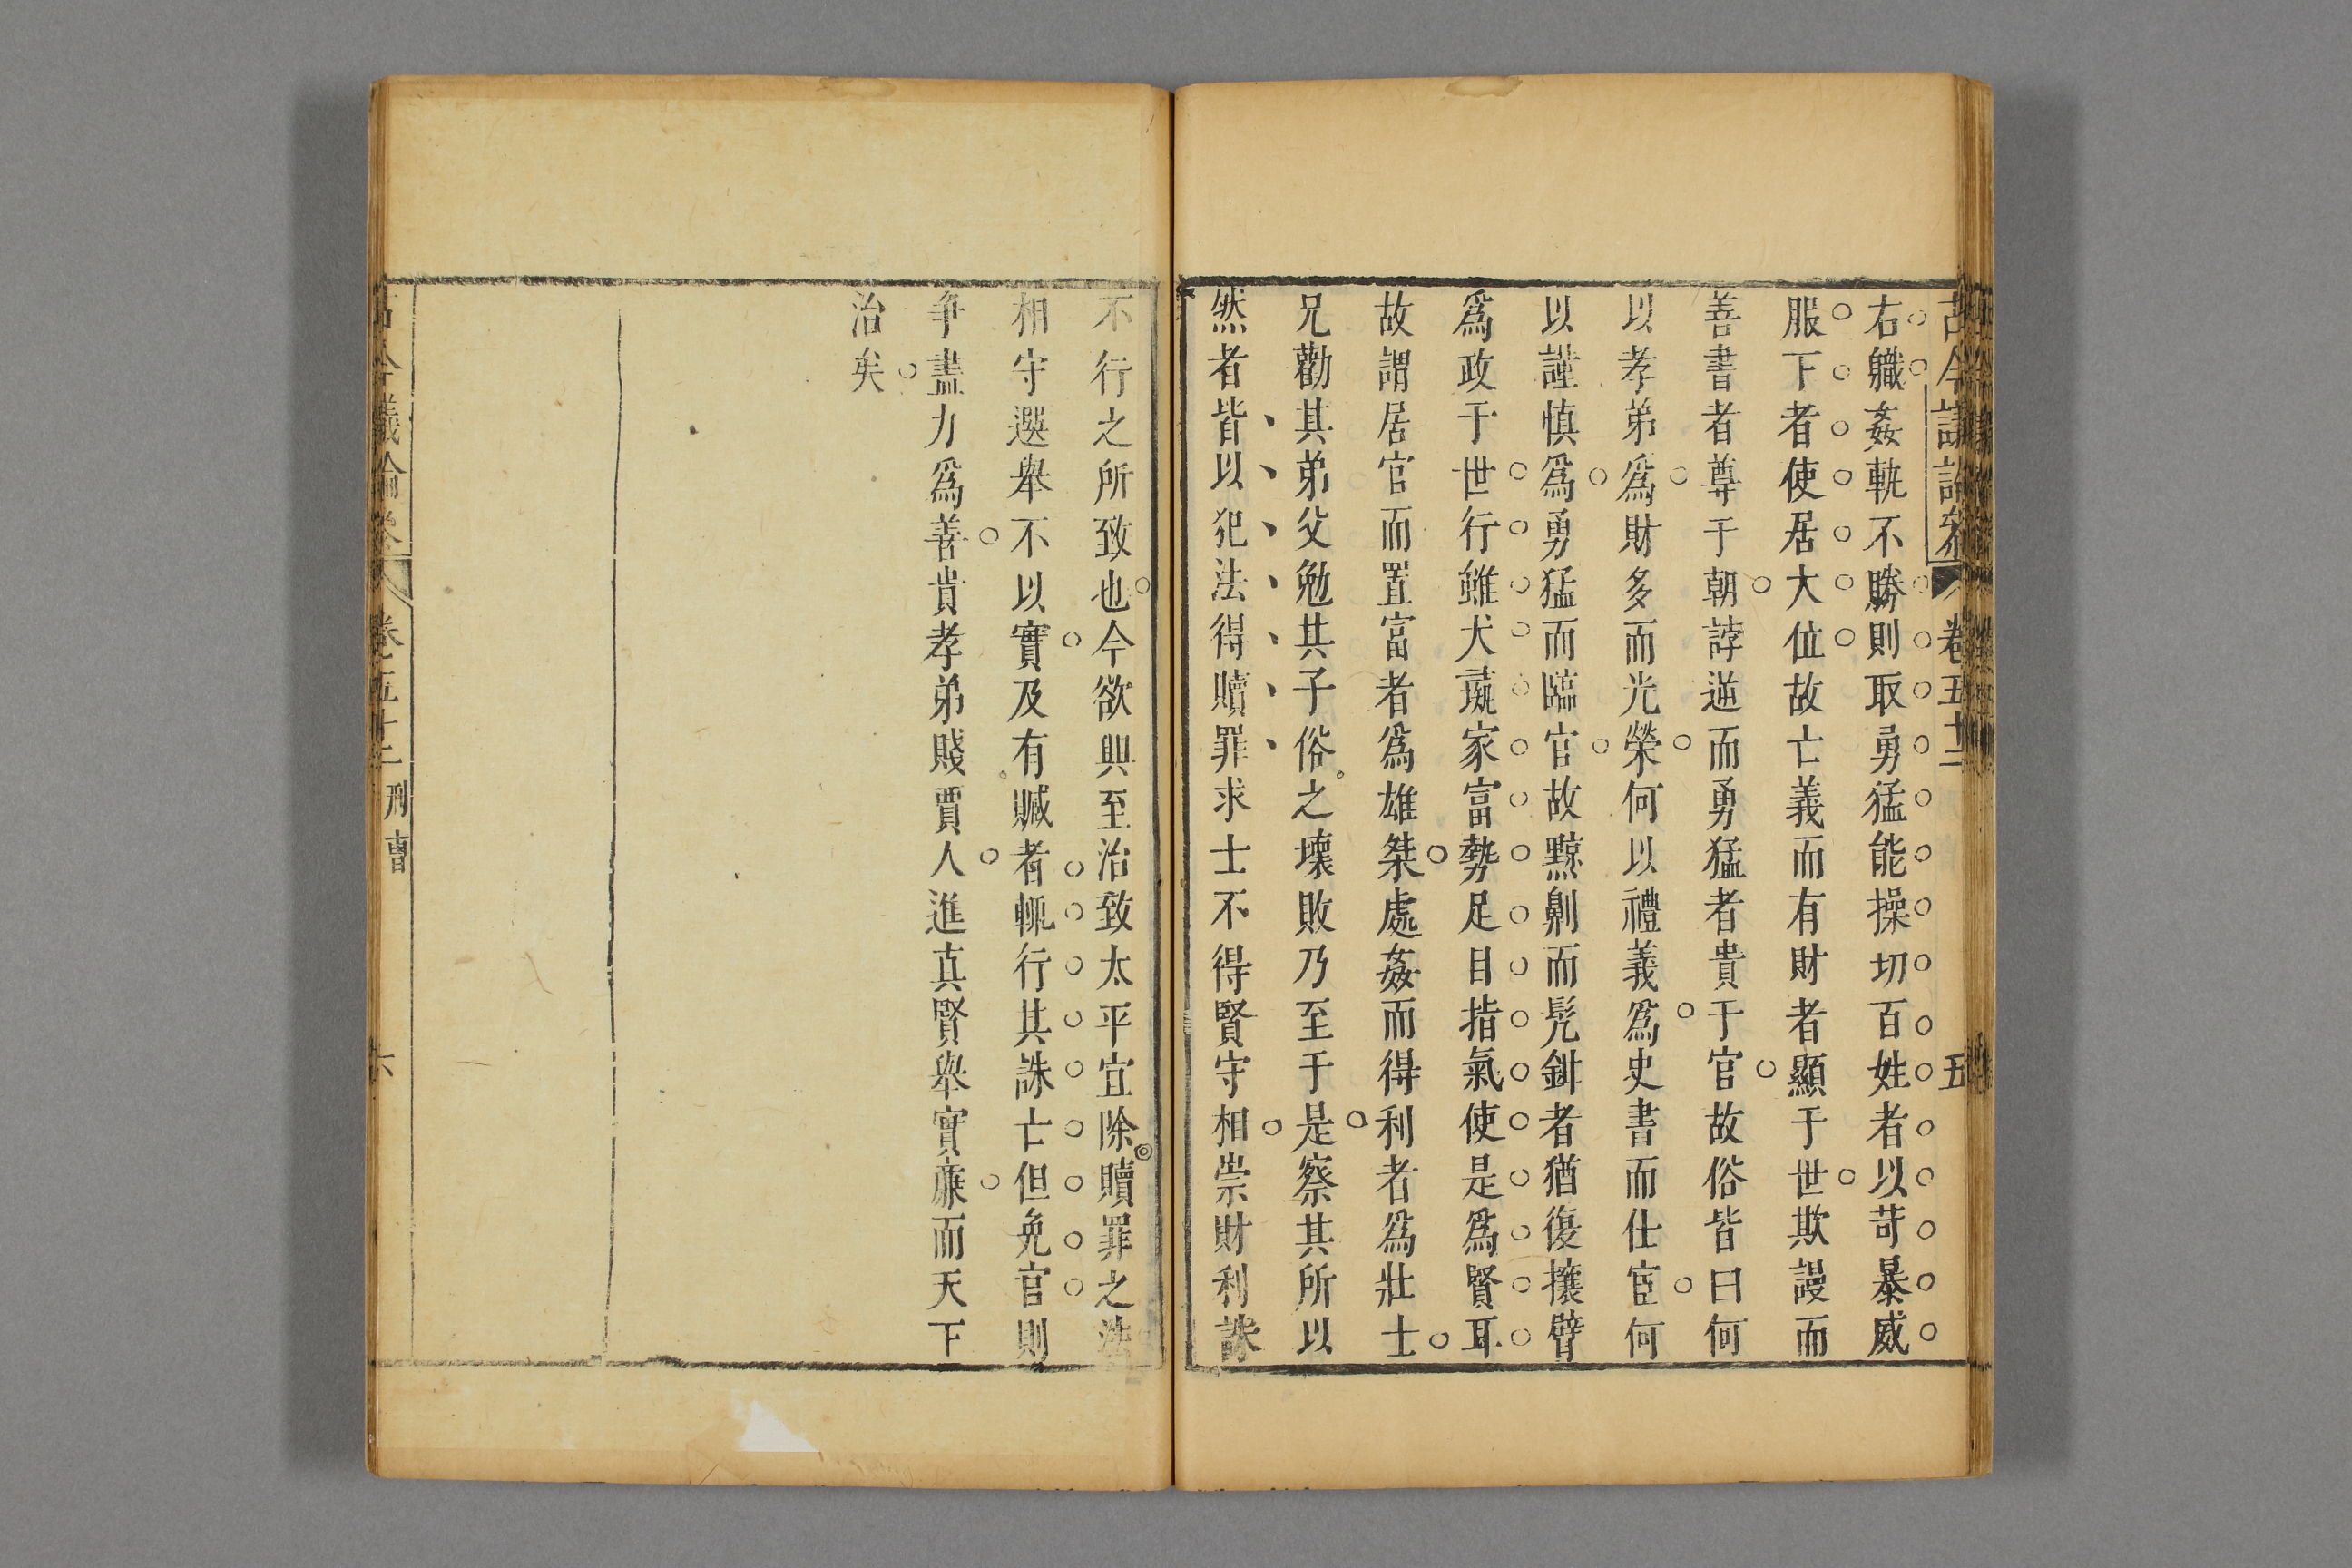 古今議論參 卷五十二 五
右職姦軌不勝則取勇猛能操切百姓者以苛暴威
服下者使居大位故亡義而有財者顯于世欺謾而
善書者尊于朝誖逆而勇猛者貴于官故俗皆曰何
以孝弟爲財多而光榮何以禮義爲史書而仕宦何
以謹慎爲勇猛而臨官故黥劓而髠鉗者猶復攘臂
爲政于世行雖犬彘家富勢足目指氣使是爲賢耳
故謂居官而置富者爲雄桀處姦而得利者爲壯士
兄勸其弟父勉其子俗之壞敗乃至于是察其所以
然者皆以犯法得贖罪求士不得賢守相崇財利誅
不行之所致也今欲興至治致太平宜除贖罪之法
相守選舉不以實及有贓者輒行其誅亡但免官則
爭盡力爲善貴孝弟賤賈人進真賢舉實廉而天下
治矣
古今議論參 卷五十二 刑曹 六